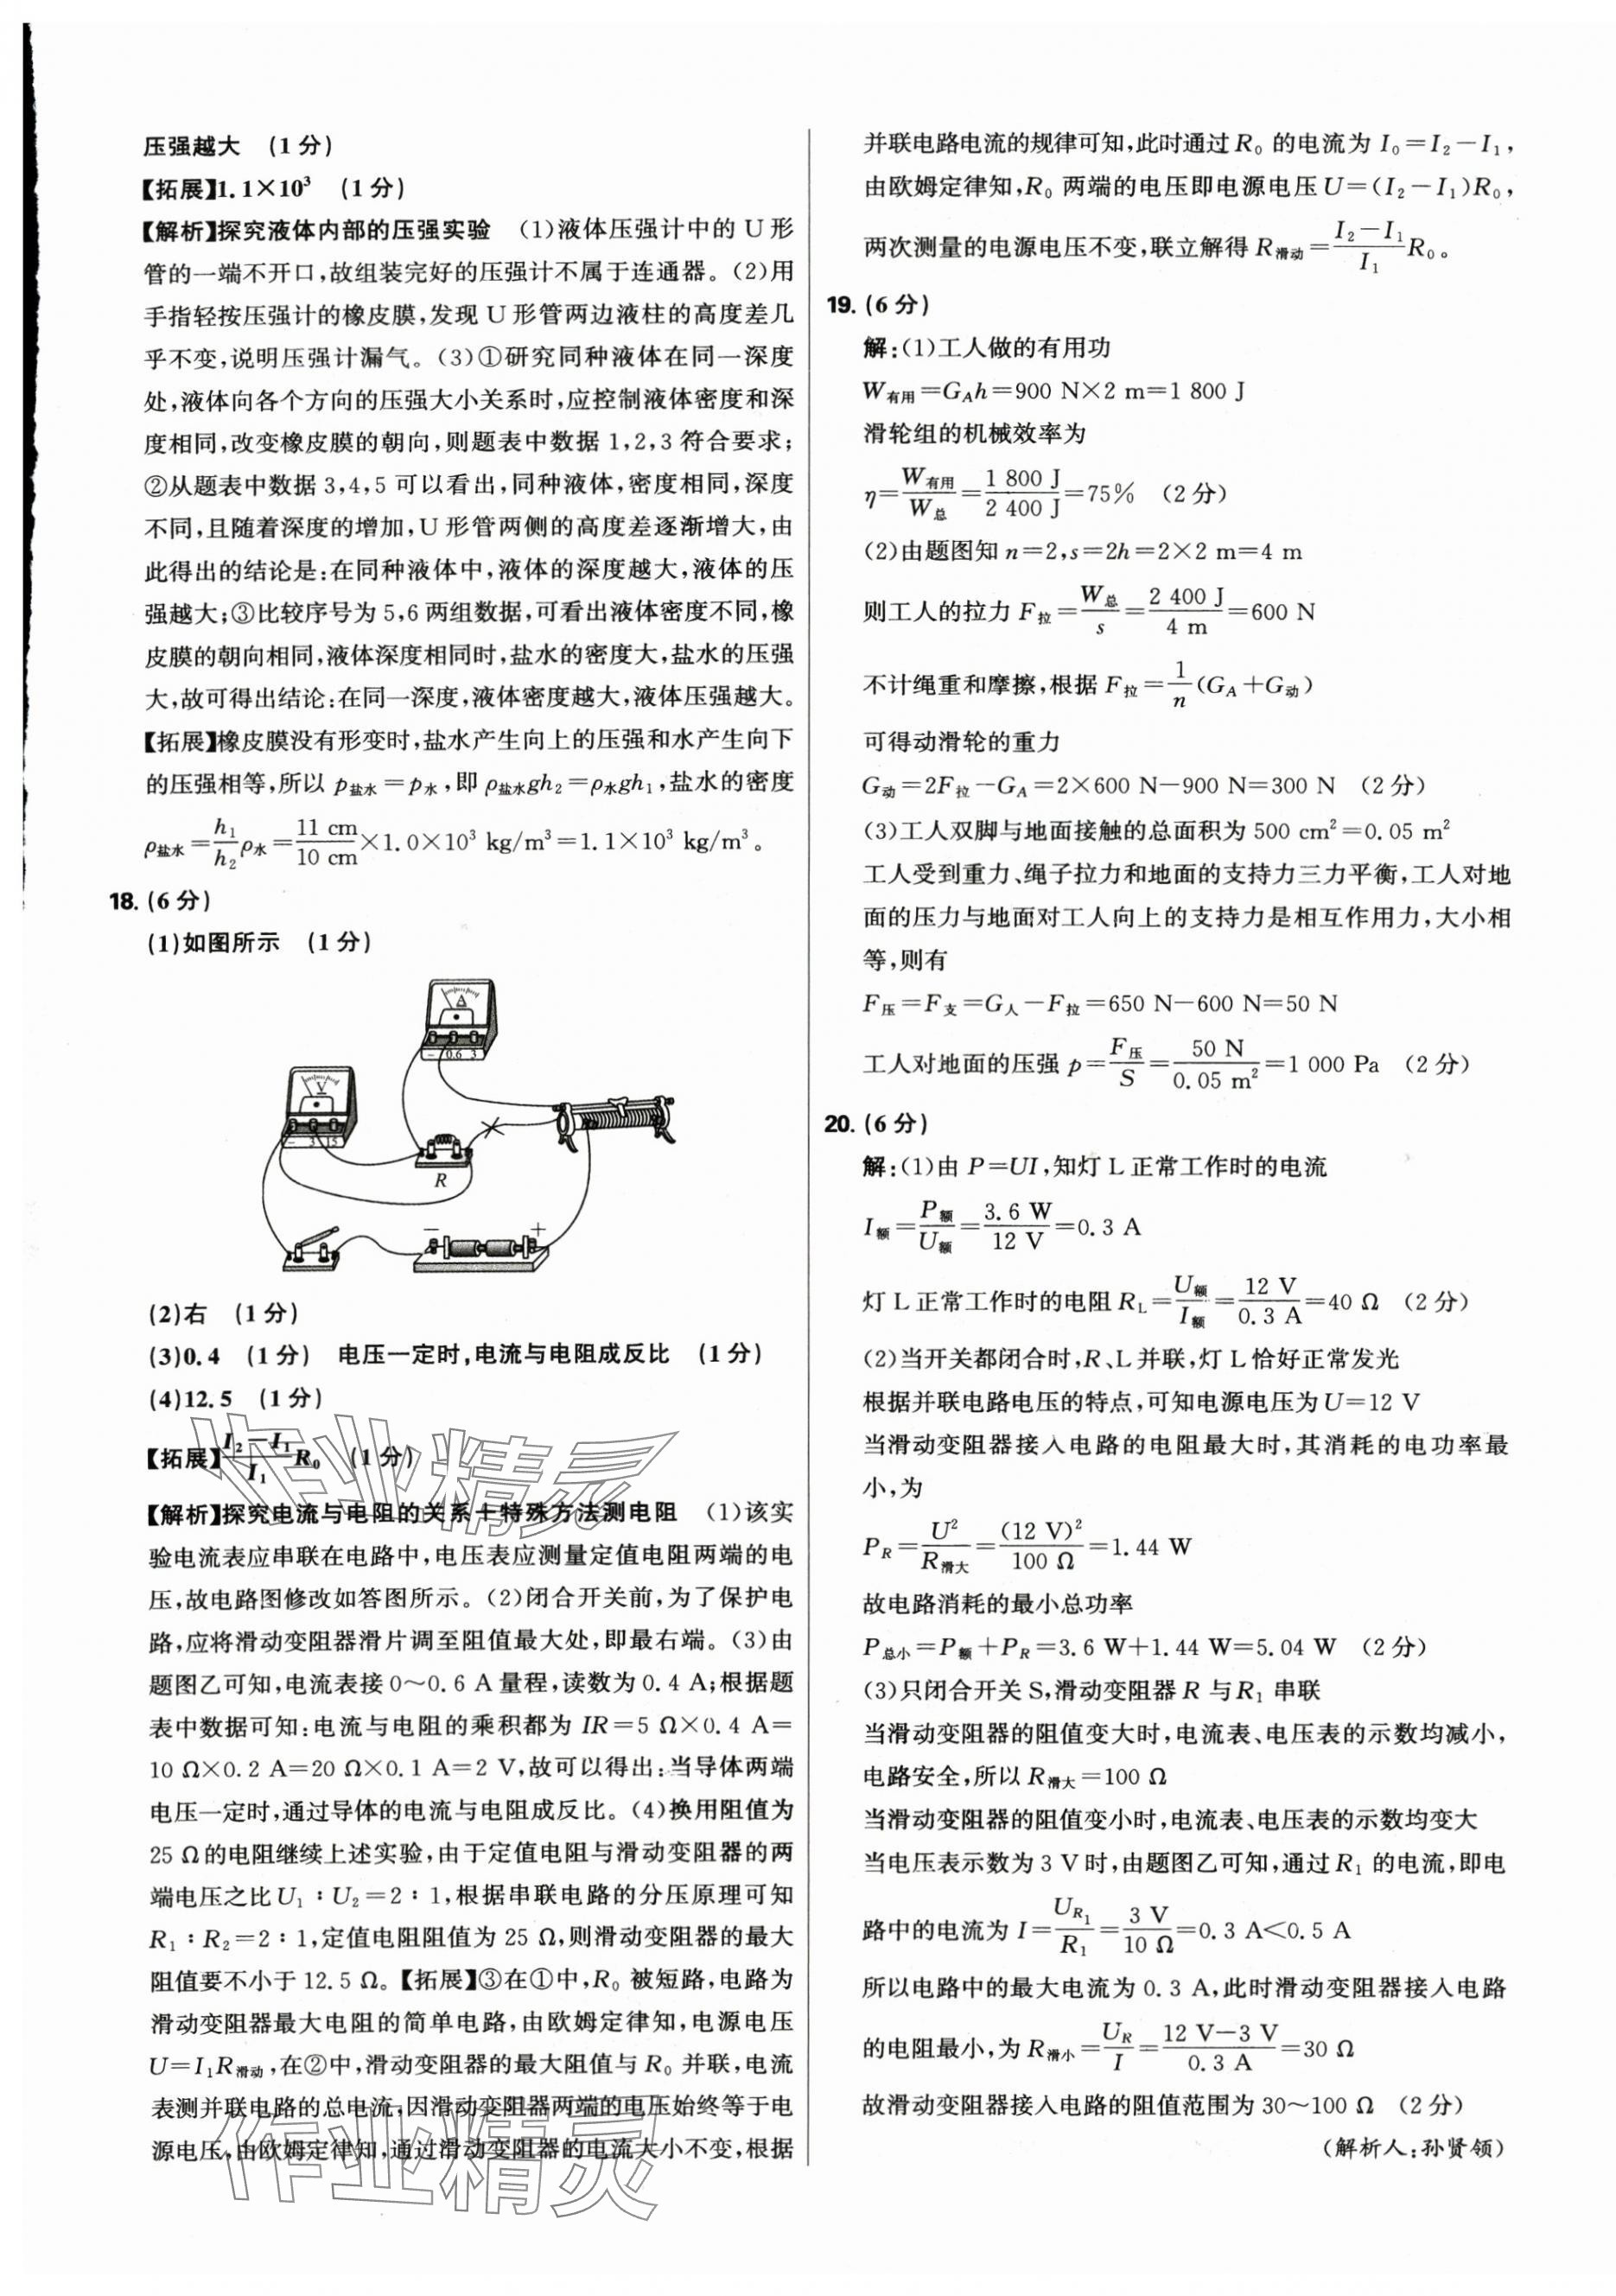 压强越大 (1分)
【拓展】1.1×10³ (1分)
【解析】探究液体内部的压强实验 (1)液体压强计中的 U 形
管的一端不开口,故组装完好的压强计不属于连通器。(2)用
手指轻按压强计的橡皮膜,发现 U 形管两边液柱的高度差几
乎不变,说明压强计漏气。(3)①研究同种液体在同一深度
处,液体向各个方向的压强大小关系时,应控制液体密度和深
度相同,改变橡皮膜的朝向,则题表中数据 1,2,3 符合要求;
②从题表中数据 3,4,5 可以看出,同种液体,密度相同,深度
不同,且随着深度的增加,U 形管两侧的高度差逐渐增大,由
此得出的结论是:在同种液体中,液体的深度越大,液体的压
强越大;③比较序号为 5,6 两组数据,可看出液体密度不同,橡
皮膜的朝向相同,液体深度相同时,盐水的密度大,盐水的压强
大,故可得出结论:在同一深度,液体密度越大,液体压强越大。
【拓展】橡皮膜没有形变时,盐水产生向上的压强和水产生向下
的压强相等,所以 p盐水=p水,即 ρ盐水gh₂=ρ水gh₁,盐水的密度
ρ盐水=h₁/h₂ρ水=11 cm/10 cm×1.0×10³ kg/m³=1.1×10³ kg/m³。
18. (6分)
(1)如图所示 (1分)
A
− 0.6 3
V
− 3 15
R
− +
(2)右 (1分)
(3)0.4 (1分) 电压一定时,电流与电阻成反比 (1分)
(4)12.5 (1分)
【拓展】(I₂−I₁)/I₁ R₀ (1分)
【解析】探究电流与电阻的关系+特殊方法测电阻 (1)该实
验电流表应串联在电路中,电压表应测量定值电阻两端的电
压,故电路图修改如答图所示。(2)闭合开关前,为了保护电
路,应将滑动变阻器滑片调至阻值最大处,即最右端。(3)由
题图乙可知,电流表接 0~0.6 A 量程,读数为 0.4 A;根据题
表中数据可知:电流与电阻的乘积都为 IR=5 Ω×0.4 A=
10 Ω×0.2 A=20 Ω×0.1 A=2 V,故可以得出:当导体两端
电压一定时,通过导体的电流与电阻成反比。(4)换用阻值为
25 Ω的电阻继续上述实验,由于定值电阻与滑动变阻器的两
端电压之比 U₁∶U₂=2∶1,根据串联电路的分压原理可知
R₁∶R₂=2∶1,定值电阻阻值为 25 Ω,则滑动变阻器的最大
阻值要不小于 12.5 Ω。【拓展】③在①中,R₀ 被短路,电路为
滑动变阻器最大电阻的简单电路,由欧姆定律知,电源电压
U=I₁R滑动,在②中,滑动变阻器的最大阻值与 R₀ 并联,电流
表测并联电路的总电流,因滑动变阻器两端的电压始终等于电
源电压,由欧姆定律知,通过滑动变阻器的电流大小不变,根据
并联电路电流的规律可知,此时通过 R₀ 的电流为 I₀=I₂−I₁,
由欧姆定律知,R₀ 两端的电压即电源电压 U=(I₂−I₁)R₀,
两次测量的电源电压不变,联立解得 R滑动=(I₂−I₁)/I₁ R₀。
19. (6分)
解:(1)工人做的有用功
W有用=G_A h=900 N×2 m=1 800 J
滑轮组的机械效率为
η=W有用/W总=1 800 J/2 400 J=75% (2分)
(2)由题图知 n=2,s=2h=2×2 m=4 m
则工人的拉力 F拉=W总/s=2 400 J/4 m=600 N
不计绳重和摩擦,根据 F拉=1/n(G_A+G动)
可得动滑轮的重力
G动=2F拉−G_A=2×600 N−900 N=300 N (2分)
(3)工人双脚与地面接触的总面积为 500 cm²=0.05 m²
工人受到重力、绳子拉力和地面的支持力三力平衡,工人对地
面的压力与地面对工人向上的支持力是相互作用力,大小相
等,则有
F压=F支=G人−F拉=650 N−600 N=50 N
工人对地面的压强 p=F压/S=50 N/0.05 m²=1 000 Pa (2分)
20. (6分)
解:(1)由 P=UI,知灯 L 正常工作时的电流
I额=P额/U额=3.6 W/12 V=0.3 A
灯 L 正常工作时的电阻 R_L=U额/I额=12 V/0.3 A=40 Ω (2分)
(2)当开关都闭合时,R、L 并联,灯 L 恰好正常发光
根据并联电路电压的特点,可知电源电压为 U=12 V
当滑动变阻器接入电路的电阻最大时,其消耗的电功率最
小,为
P_R=U²/R滑大=(12 V)²/100 Ω=1.44 W
故电路消耗的最小总功率
P总小=P额+P_R=3.6 W+1.44 W=5.04 W (2分)
(3)只闭合开关 S,滑动变阻器 R 与 R₁ 串联
当滑动变阻器的阻值变大时,电流表、电压表的示数均减小,
电路安全,所以 R滑大=100 Ω
当滑动变阻器的阻值变小时,电流表、电压表的示数均变大
当电压表示数为 3 V 时,由题图乙可知,通过 R₁ 的电流,即电
路中的电流为 I=U_R₁/R₁=3 V/10 Ω=0.3 A<0.5 A
所以电路中的最大电流为 0.3 A,此时滑动变阻器接入电路
的电阻最小,为 R滑小=U_R/I=(12 V−3 V)/0.3 A=30 Ω
故滑动变阻器接入电路的阻值范围为 30~100 Ω (2分)
(解析人:孙贤领)
作业精灵
作业精灵